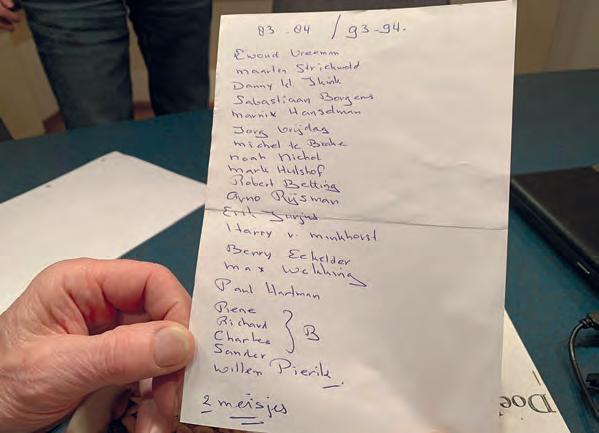 83-84 / 93-94.
Ewoud Vreeman
maarten Strickwold
Danny kl.
Sabastiaan Borgers
Marnik Hanselman
Jorg Vrijdag
michel te Brake
noah Nichol
mark Hulshof
Robert Betting
Arno Rijsman
Erik
Harry v. minkhorst
Berry Eckelder
max Welhing
Paul Hartman
Rene
Richard
Charles } B
Sander
Willem Pierik
2 meisjes
Doe